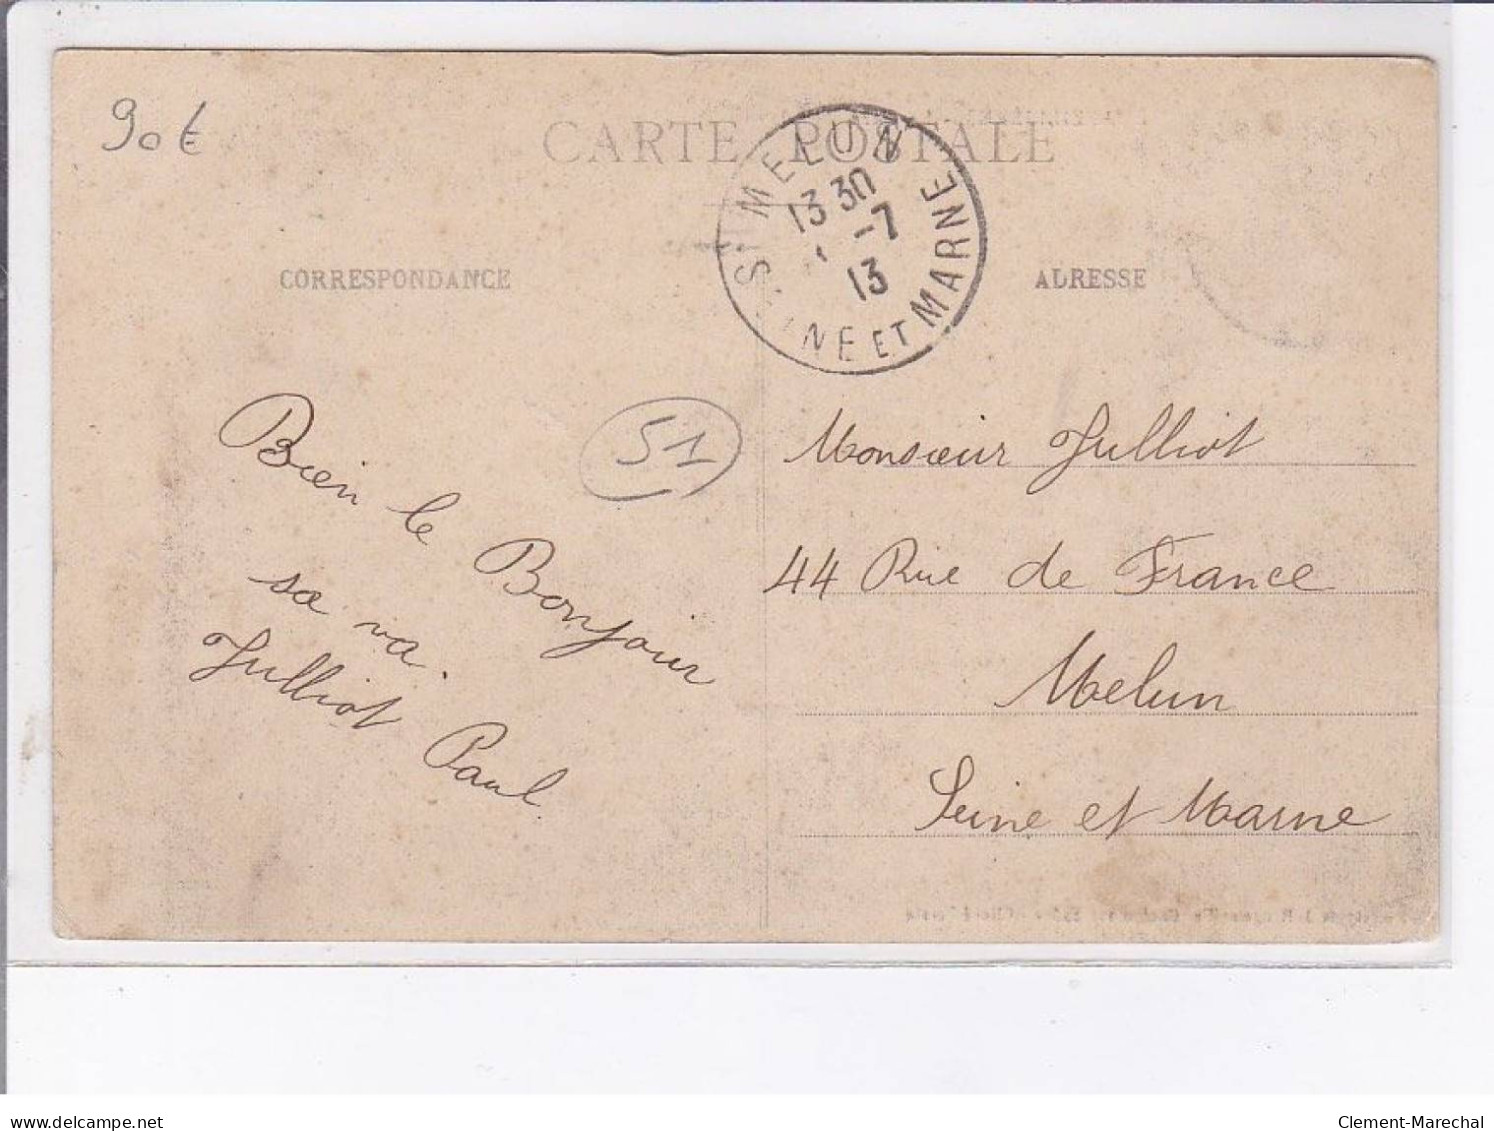 90€
CARTE POSTALE
MELUN
13 30
-7
13
SEINE ET MARNE
CORRESPONDANCE
ADRESSE
51
Bien le Bonjour
sa va.
Julliot Paul
Monsieur Julliot
44 Rue de France
Melun
Seine et Marne
delcampe.net
Clement-Marechal